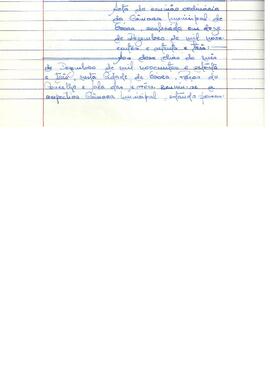 Acta da reunião ordinária
da Câmara Municipal de
realizada em doze
de Dezembro de mil nove
centos e setenta e três:
Aos doze dias do mês
de Dezembro de mil novecentos e setenta
e três, nesta Cidade de Paços do
Concelho e sala das sessões reuniu-se a
respectiva Câmara Municipal, estando presen-